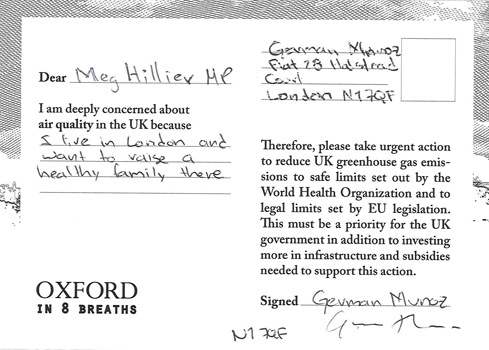 Dear Meg Hillier MP
I am deeply concerned about
air quality in the UK because
I live in London and
want to raise a
healthy family there
OXFORD
IN 8 BREATHS
German Munoz
Flat 28 Halstead
Court
London N17QF
Therefore, please take urgent action
to reduce UK greenhouse gas emis-
sions to safe limits set out by the
World Health Organization and to
legal limits set by EU legislation.
This must be a priority for the UK
government in addition to investing
more in infrastructure and subsidies
needed to support this action.
Signed German Munoz
N17QF